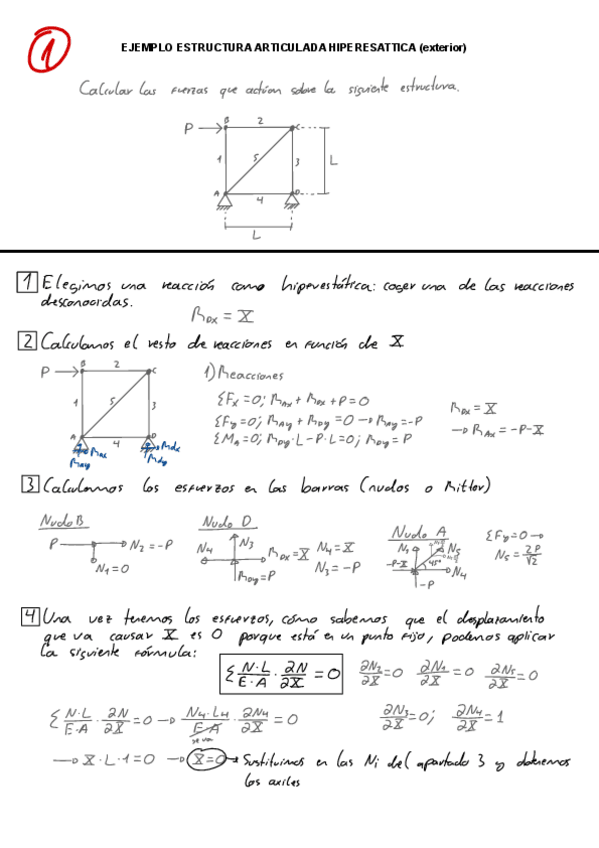 1
EJEMPLO ESTRUCTURA ARTICULADA HIPERESATTICA (exterior)
Calcular las fuerzas que actúan sobre la siguiente estructura.
P B 2 C
1 5 3 L
A 4 D
L
1 Elegimos una reacción como hiperestática: coger una de las reacciones
desconocidas.
R_DX = X
2 Calculamos el resto de reacciones en función de X
P B 2 C
1 5 3
A 4 D
R_AX R_DX
R_AY R_DY
1) Reacciones
ΣF_X = 0; R_AX + R_DX + P = 0
ΣF_Y = 0; R_AY + R_DY = 0 → R_AY = -P
ΣM_A = 0; R_DY · L - P · L = 0; R_DY = P
R_DX = X
→ R_AX = -P-X
3 Calculamos los esfuerzos en las barras (nudos o Ritter)
Nudo B
P N2 = -P
N1 = 0
Nudo D
N4 N3 R_DX = X N4 = X
R_DY = P N3 = -P
Nudo A
N1 N5
-P-X 45° N4
-P
ΣF_Y = 0 →
N5 = 2P/√2
4 Una vez tenemos los esfuerzos, cómo sabemos que el desplazamiento
que va causar X es 0 porque está en un punto fijo, podemos aplicar
la siguiente fórmula:
Σ N·L/E·A · ∂N/∂X = 0
∂N2/∂X = 0 ∂N1/∂X = 0 ∂N5/∂X = 0
Σ N·L/E·A · ∂N/∂X = 0 → N4·L4/E·A · ∂N4/∂X = 0
se va
∂N3/∂X = 0; ∂N4/∂X = 1
→ X · L · 1 = 0 → X = 0 → Sustituimos en las Ni del apartado 3 y obtenemos
los axiles